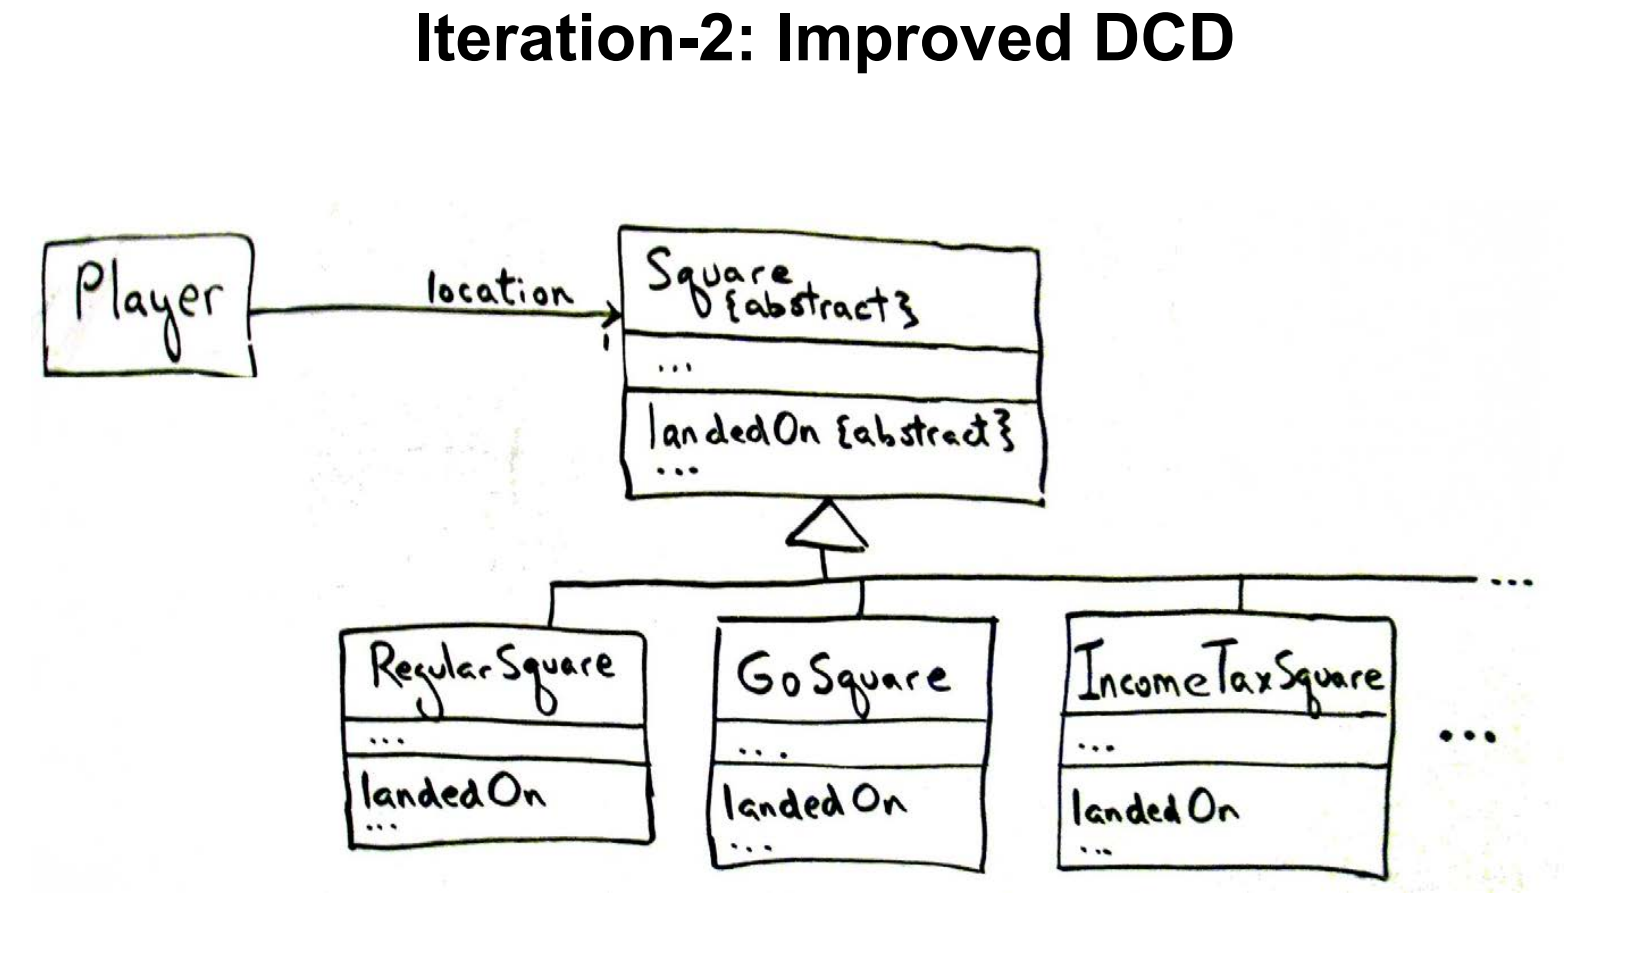 Iteration-2: Improved DCD
Player
location
1
Square
{abstract}
...
landedOn {abstract}
...
...
RegularSquare
...
landedOn
...
GoSquare
...
landedOn
...
IncomeTaxSquare
...
landedOn
...
...